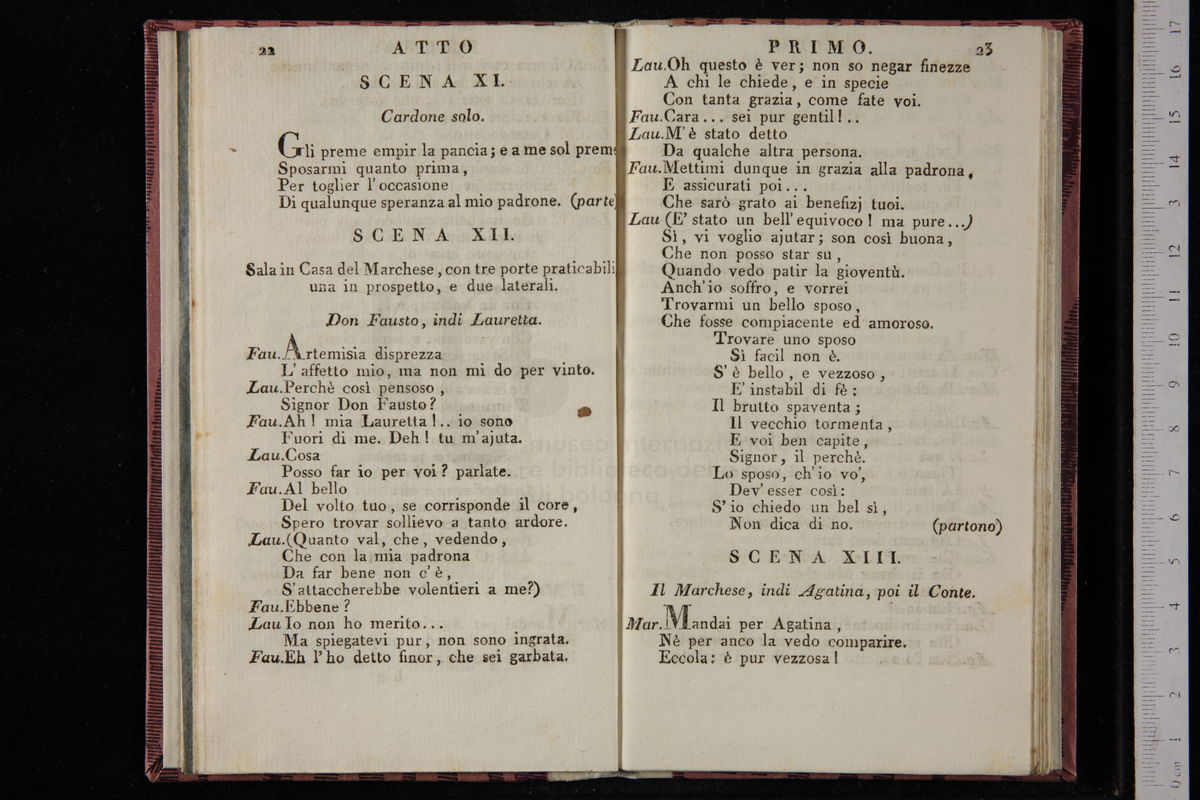 22 ATTO
SCENA XI.
Cardone solo.
Gli preme empir la pancia; e a me sol preme
Sposarmi quanto prima,
Per toglier l'occasione
Di qualunque speranza al mio padrone. (parte)
SCENA XII.
Sala in Casa del Marchese, con tre porte praticabili
una in prospetto, e due laterali.
Don Fausto, indi Lauretta.
Fau.Artemisia disprezza
L'affetto mio, ma non mi do per vinto.
Lau.Perchè così pensoso,
Signor Don Fausto?
Fau.Ah! mia Lauretta!.. io sono
Fuori di me. Deh! tu m'ajuta.
Lau.Cosa
Posso far io per voi? parlate.
Fau.Al bello
Del volto tuo, se corrisponde il core,
Spero trovar sollievo a tanto ardore.
Lau.(Quanto val, che, vedendo,
Che con la mia padrona
Da far bene non c'è,
S'attaccherebbe volentieri a me?)
Fau.Ebbene?
Lau Io non ho merito...
Ma spiegatevi pur, non sono ingrata.
Fau.Eh l'ho detto finor, che sei garbata.
PRIMO. 23
Lau.Oh questo è ver; non so negar finezze
A chi le chiede, e in specie
Con tanta grazia, come fate voi.
Fau.Cara... sei pur gentil!..
Lau.M'è stato detto
Da qualche altra persona.
Fau.Mettimi dunque in grazia alla padrona,
E assicurati poi...
Che sarò grato ai benefizj tuoi.
Lau (E' stato un bell'equivoco! ma pure...)
Sì, vi voglio ajutar; son così buona,
Che non posso star su,
Quando vedo patir la gioventù.
Anch'io soffro, e vorrei
Trovarmi un bello sposo,
Che fosse compiacente ed amoroso.
Trovare uno sposo
Sì facil non è.
S'è bello, e vezzoso,
E' instabil di fè:
Il brutto spaventa;
Il vecchio tormenta,
E voi ben capite,
Signor, il perchè.
Lo sposo, ch'io vo',
Dev'esser così:
S'io chiedo un bel sì,
Non dica di no. (partono)
SCENA XIII.
Il Marchese, indi Agatina, poi il Conte.
Mar.Mandai per Agatina
Nè per anco la vedo comparire.
Eccola: è pur vezzosa!
museo internazi
e biblioteca de
di bologna
0 cm 1 2 3 4 5 6 7 8 9 10 11 12 13 14 15 16 17